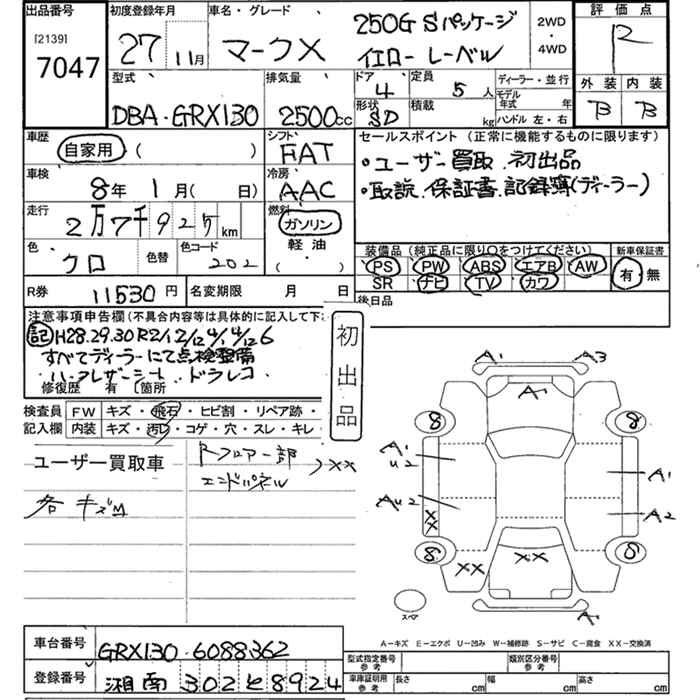 出品番号 初度登録年月 車名・グレード 評価点
[2139]
7047
27年 11月 マークX 250G Sパッケージ イエローレーベル 2WD ・ 4WD R
型式 排気量 ドア 定員 ディーラー・並行 外装 内装
DBA-GRX130 2500cc 4 5人 モデル年式 年 B B
形状 積載 ハンドル 左・右
SD kg
車歴 シフト セールスポイント(正常に機能するものに限ります)
自家用 ( ) FAT ・ユーザー買取、初出品
車検 冷房 ・取説、保証書、記録簿(ディーラー)
8年 1月( 日) AAC
走行 燃料
2万7千925km ガソリン
色 色替 色コード 軽油
クロ 202 ( )
装備品(純正品に限り○をつけてください) 新車保証書
PS PW ABS エアB AW 有・無
SR ナビ TV カワ
R券 11530円 名変期限 月 日 後日品
注意事項申告欄(不具合内容等は具体的に記入して下
記 H28.29.30 R2/12
すべてディーラーにて点検整備
ハーフレザーシート、ドラレコ
修復歴 有 ( )箇所
初出品
検査員 FW キズ・飛石・ヒビ割・リペア跡・
記入欄 内装 キズ・汚れ・コゲ・穴・スレ・キレ・
ユーザー買取車 Rフロアー部 エンドパネル )XX
各キズ
A1 A3
A1
8 8
A1 U2 A1
AU2 XX A2
8 8
XX XX
スペア A1
A-キズ E-エクボ U-凹み W-補修跡 S-サビ C-腐食 XX-交換済
車台番号 GRX130-6088362
型式指定番号 参考 類別区分番号 参考
登録番号 湘南 302 せ 8924
車庫証明用 参考 長さ cm 幅 cm 高さ cm